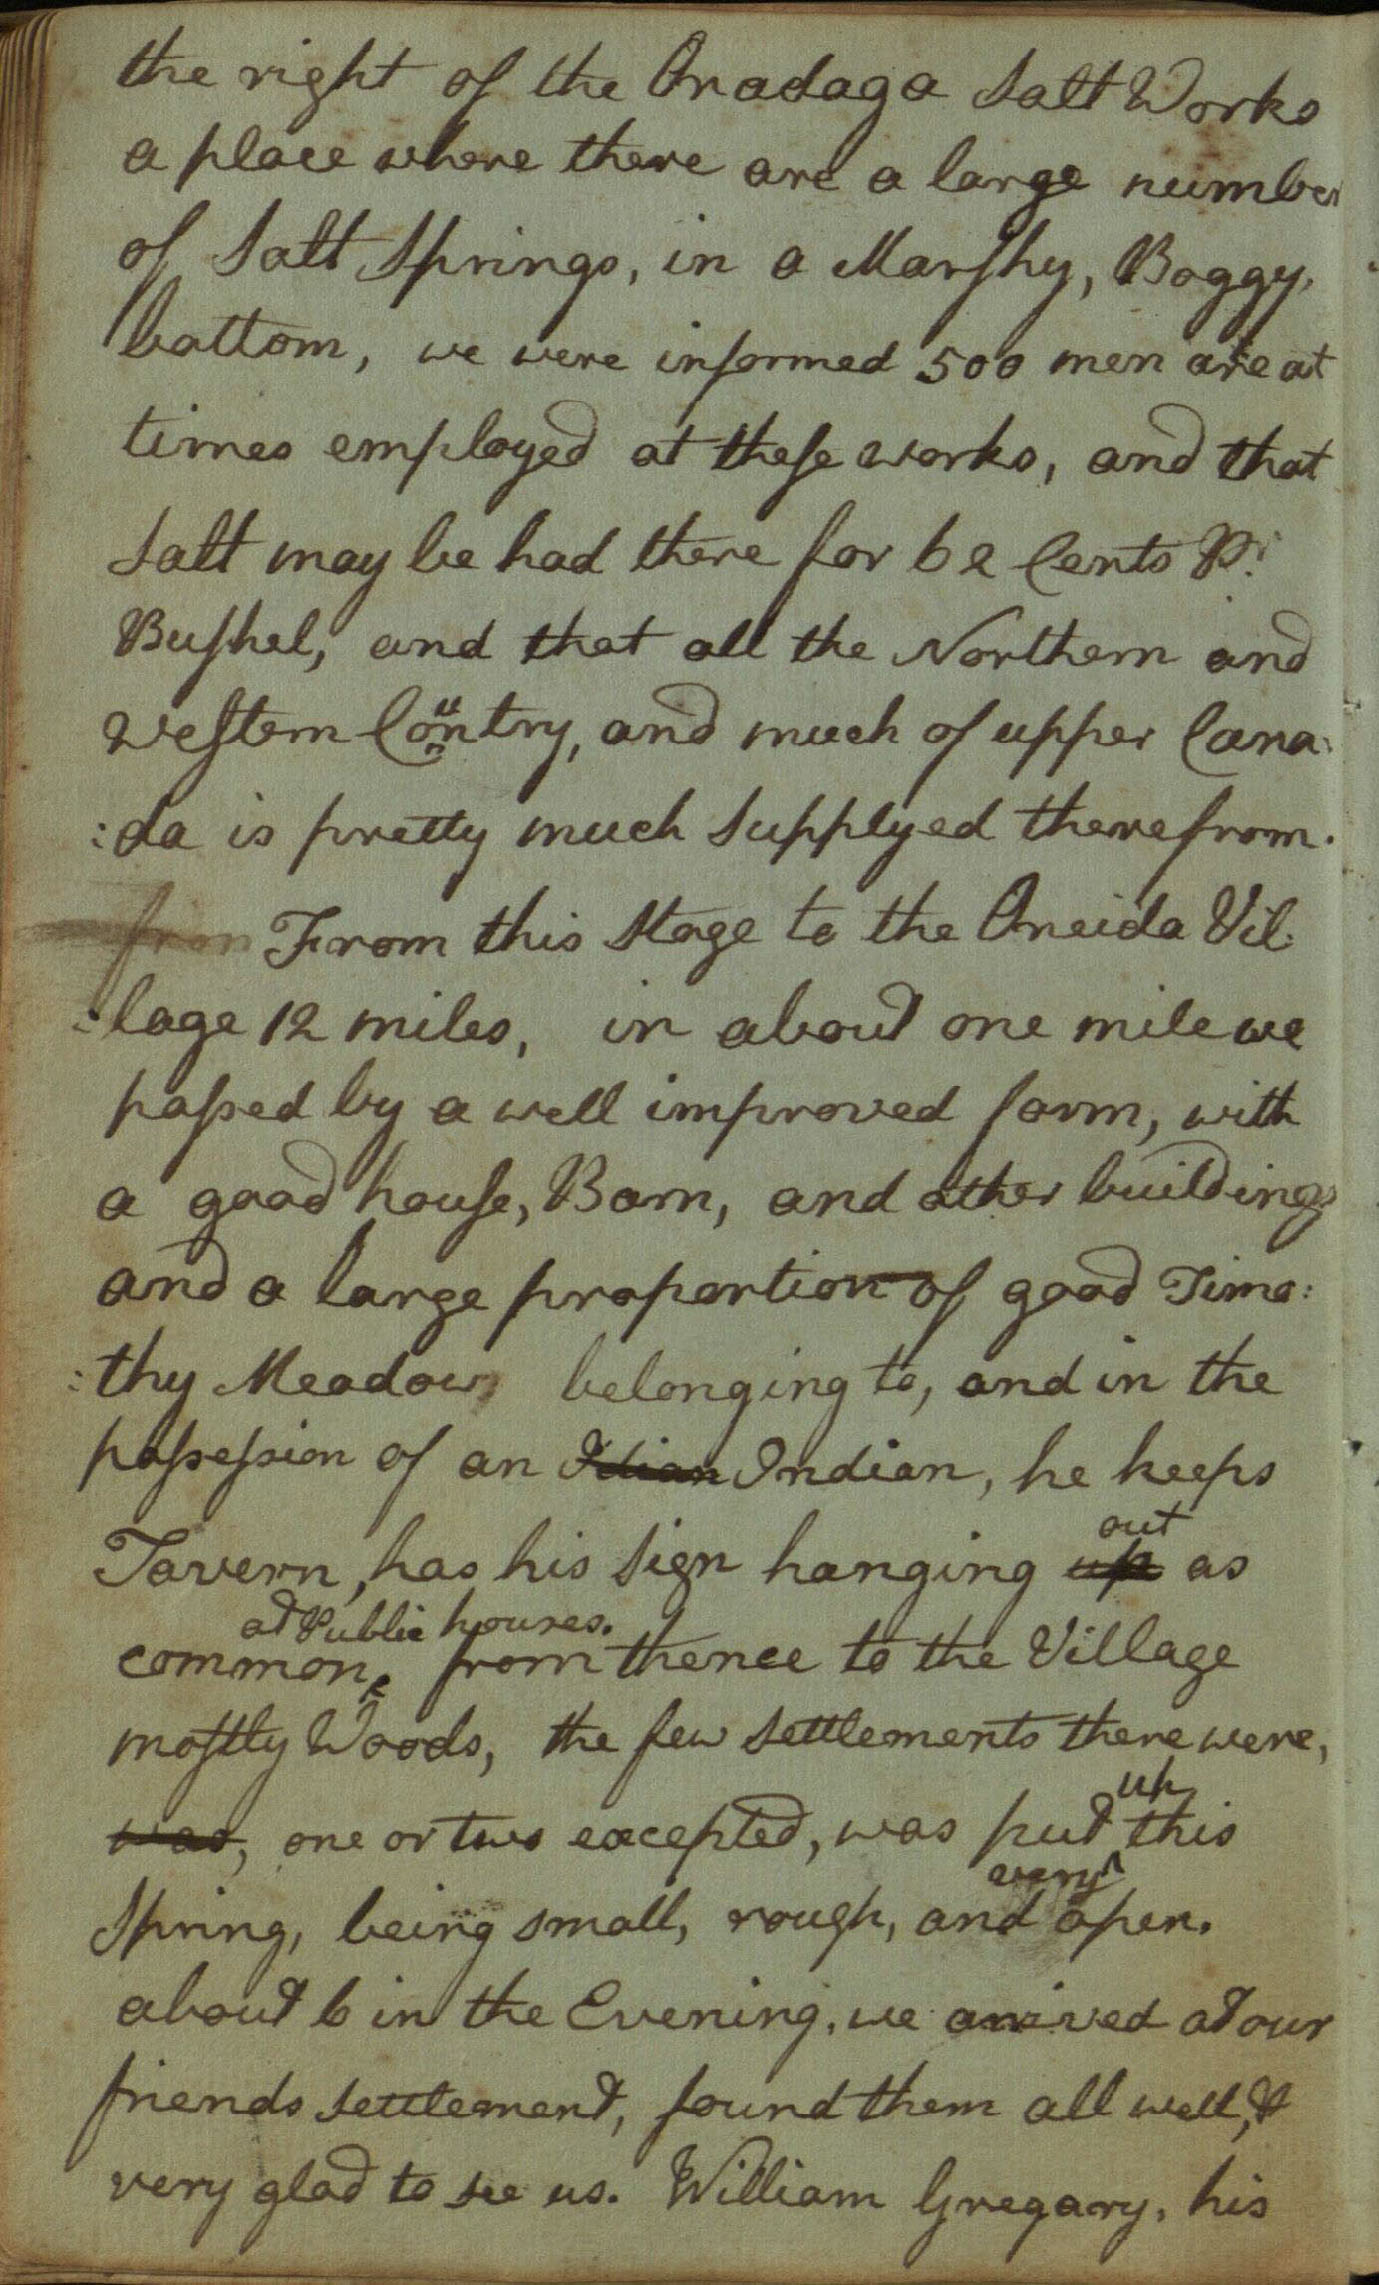 the right of the Onadaga Salt Works
a place where there are a large number
of Salt Springs, in a Marshy, Boggy,
bottom, we were informed 500 men are at
times employed at these works, and that
Salt may be had there for 62 Cents Pr.
Bushel, and that all the Northern and
Western Contry, and much of upper Cana:
:da is pretty much Supplyed therefrom.
from From this Stage to the Oneida Vil:
:lage 12 miles, in about one mile we
passed by a well improved farm, with
a good house, Barn, and other buildings
and a large proportion of good Timo:
:thy Meadow, belonging to, and in the
possession of an Idian Indian, he keeps
out
Tavern, has his Sign hanging up as
at Public houses.
common, from thence to the Village
mostly Woods, the few settlements there were,
up
was, one or two excepted, was put this
very
Spring, being small, rough, and open.
about 6 in the Evening, we arrived at our
friends settlement, found them all well, &
very glad to see us. William Gregary, his